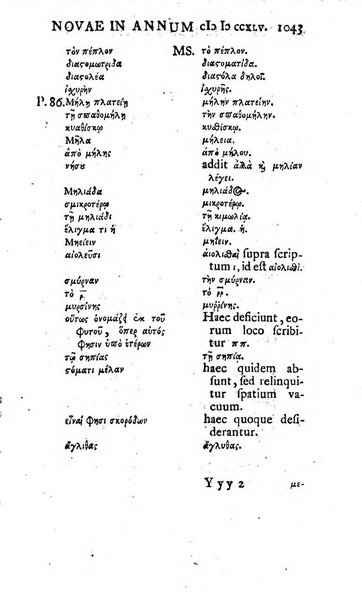 NOVAE IN ANNUM cIↃ IↃ CCXLV. 1043
τὸν πέπλον MS. τὸ πέπλον.
διασομωτρίδα διασοματίδα.
διασολέα διασόλα δηλοῖ.
ἰσχυρὴν ἰσχυρῆς.
P. 86. Μήλῃ πλατείῃ μήλην πλατείην.
τῇ σπαθομήλῃ τὴν σπαθομήλην.
κυαθίσκῳ κυαθίσκον.
Μῆλα μήλεια.
ἀπὸ μήλης ἀπὸ μήλου.
νήσῳ addit ἀλλὰ καὶ μηλίαν
λέγει.
Μηλιάδα μηλιάδος.
σμικροτέρῳ σμικροτέρω.
τῇ μηλιάδι τῇ κιμωλίᾳ.
ἕλιγμα τι ἢ ἕλιγμα. ἢ.
Μηείειν μηίειν.
αἰολεῦσι αἰολιθι supra scrip
tum ι, id est αἰολιθι.
σμύρναν τὴν σμύραν.
τὸ ρ̄ τὸ ρ̄.
μυρσίνης μυῤῥίνης.
οὕτως ὀνομάζει ἐκ τοῦ Haec deficiunt, eo-
φυτοῦ, ὅπερ αὐτός rum loco scribi
φησιν ὑπὸ ἑτέρων tur ππ.
τῷ σηπίας τῇ σηπία.
στόματι μέλαν haec quidem ab-
sunt, sed relinqui
tur spatium va-
cuum.
εἶναί φησι σκορόδων haec quoque desi-
derantur.
ἀγλιθας ἄγλυθας.
Yyy 2 με-